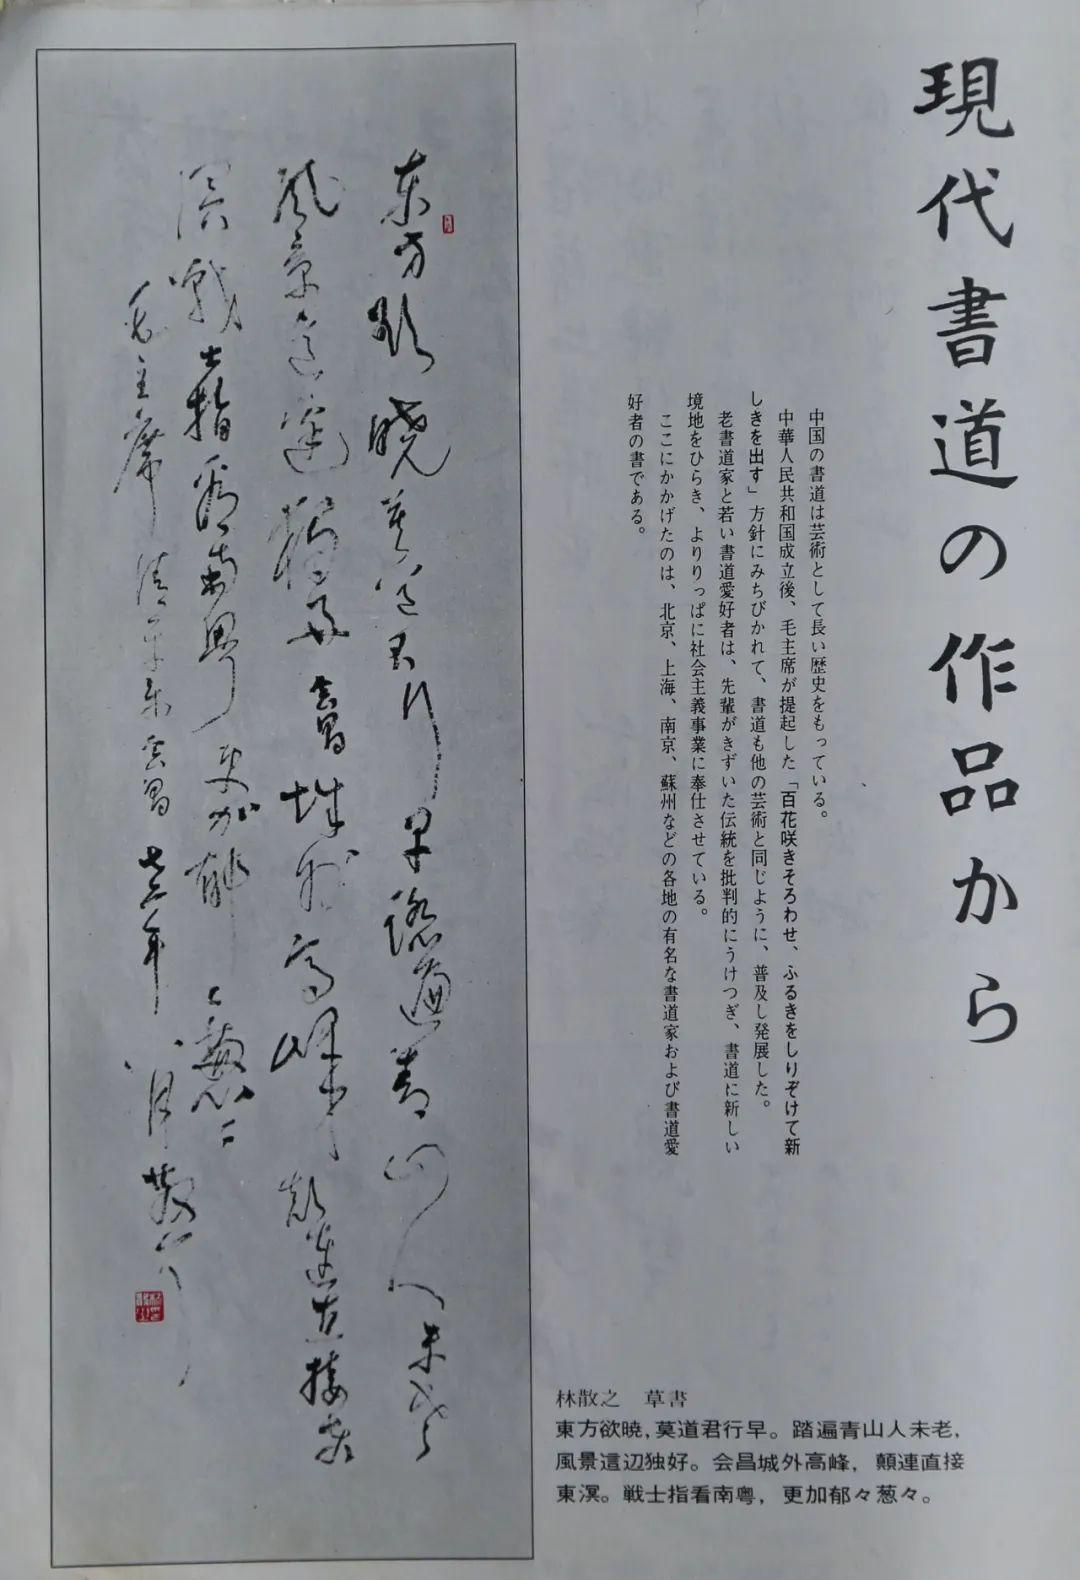 現代書道の作品から
中国の書道は芸術として長い歴史をもっている。
中華人民共和国成立後、毛主席が提起した「百花咲きそろわせ、ふるきをしりぞけて新
しきを出す」方針にみちびかれて、書道も他の芸術と同じように、普及し発展した。
老書道家と若い書道愛好者は、先輩がきずいた伝統を批判的にうけつぎ、書道に新しい
境地をひらき、よりりっぱに社会主義事業に奉仕させている。
ここにかかげたのは、北京、上海、南京、蘇州などの各地の有名な書道家および書道愛
好者の書である。
东方欲曉莫道君行早踏遍青山人未老
風景這邊獨好會昌城外高峰顛連直接東
溟戰士指看南粤更加郁々葱々
毛主席清平乐會昌七三年八月散之
林散之　草書
東方欲暁,莫道君行早。踏遍青山人未老,
風景這辺独好。会昌城外高峰,顛連直接
東溟。戦士指看南粤,更加郁々葱々。